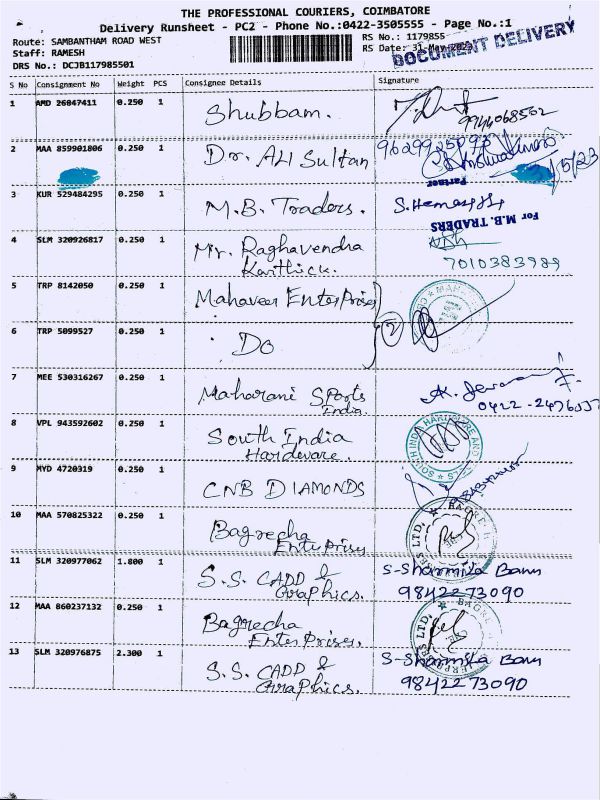 THE PROFESSIONAL COURIERS, COIMBATORE
Delivery Runsheet - PC2 - Phone No.:0422-3505555 - Page No.:1
Route: SAMBANTHAM ROAD WEST
RS No.: 1179855
Staff: RAMESH
RS Date: 31-May-2023
DOCUMENT DELIVERY
DRS No.: DCJB117985501
S No Consignment No Weight PCS Consignee Details Signature
1 AMD 26847411 0.250 1 Shubbam.
9944068502
2 MAA 859901806 0.250 1 Dr. ALI Sultan
9629925093
31/5/23
Partner
3 KUR 529484295 0.250 1 M.B. Traders.
For M.B. TRADERS
4 SLM 320926817 0.250 1 Mr. Raghavendra
Karthick.
7010383989
5 TRP 8142050 0.250 1 Mahaveer Enterprises
2
6 TRP 5099527 0.250 1 Do
7 MEE 530316267 0.250 1 Maharani Sports
India.
8 VPL 943592602 0.250 1 South India
Hardware.
SOUTH INDIA HARDWARE AND
9 MYD 4720319 0.250 1 CNB DIAMONDS
10 MAA 570825322 0.250 1 Bagrecha
Enterprises
11 SLM 320977062 1.800 1 S.S. CADD &
Graphics.
S-Sharmila Banu
9842273090
12 MAA 860237132 0.250 1 Bagrecha
Enterprises.
13 SLM 320976875 2.300 1 S.S. CADD &
Graphics.
S-Sharmila Banu
9842273090